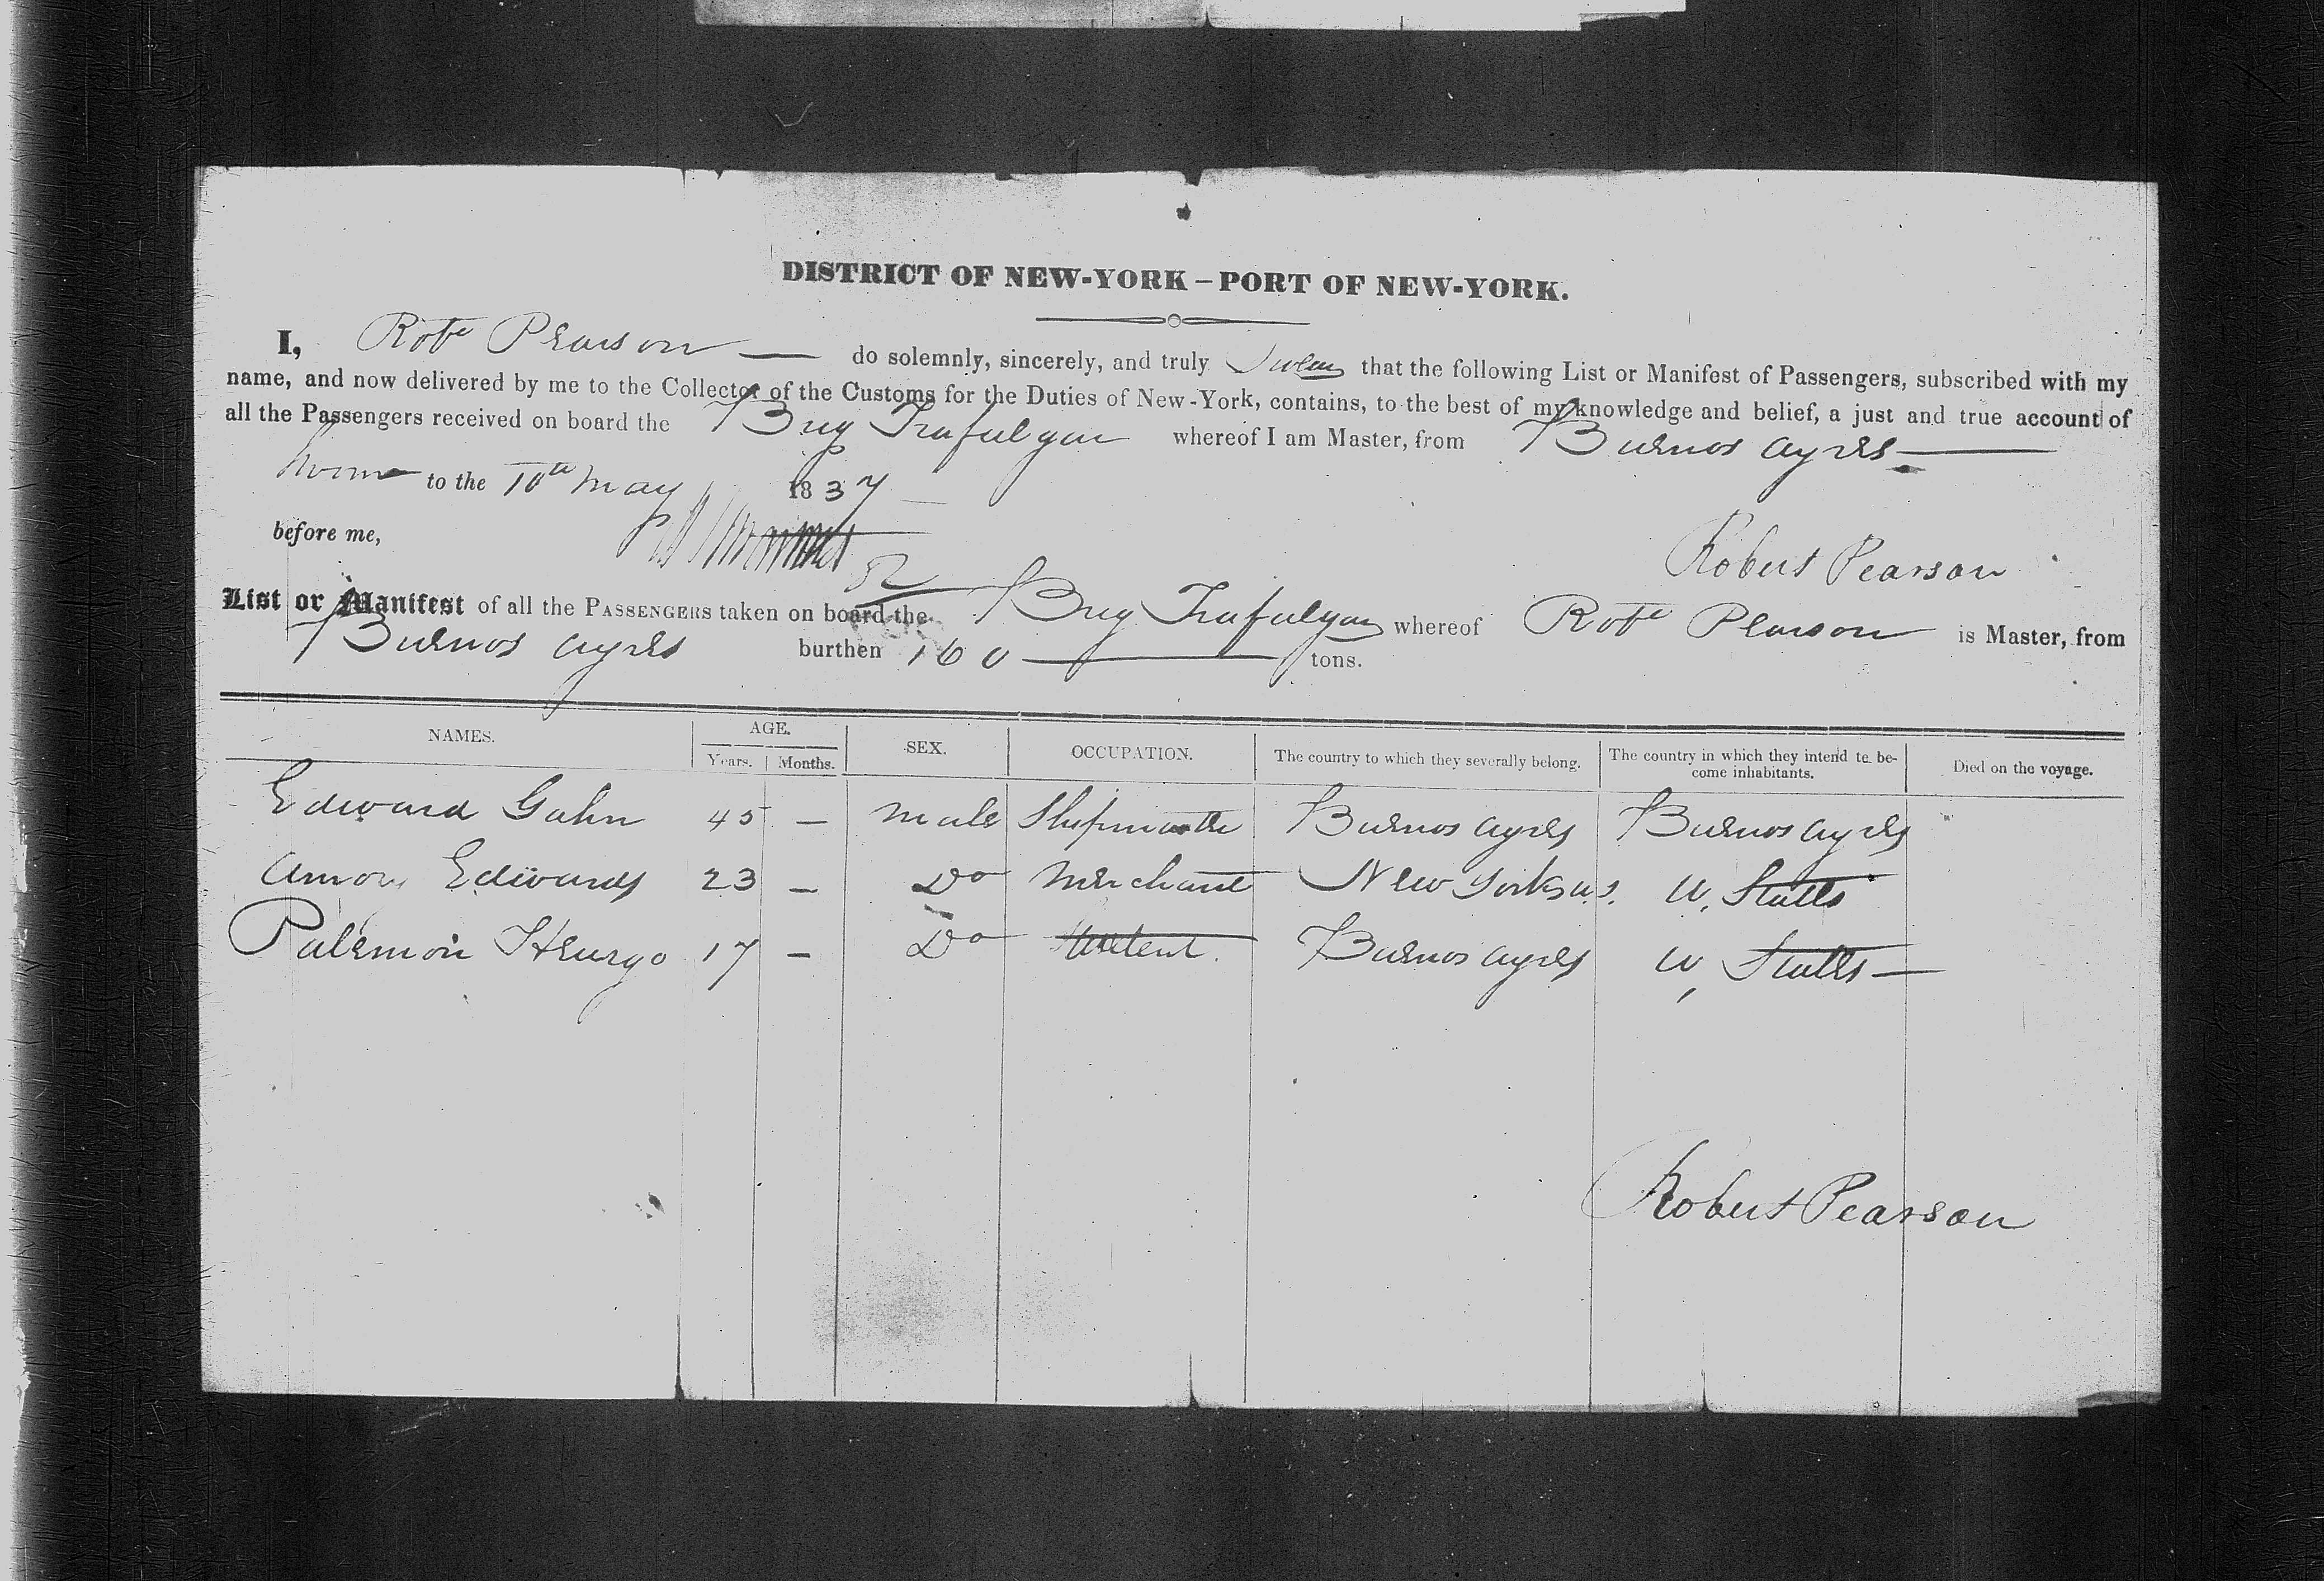 DISTRICT OF NEW-YORK – PORT OF NEW-YORK.
I, Robt Pearson — do solemnly, sincerely, and truly Swear that the following List or Manifest of Passengers, subscribed with my
name, and now delivered by me to the Collector of the Customs for the Duties of New-York, contains, to the best of my knowledge and belief, a just and true account of
all the Passengers received on board the Brig Trafalgar whereof I am Master, from Buenos Ayres —
Sworn to the 10th May 1837
before me,
Robert Pearson
List or Manifest of all the PASSENGERS taken on board the Brig Trafalgar whereof Robt Pearson is Master, from
Buenos Ayres burthen 160 — tons.
NAMES. AGE. SEX. OCCUPATION. The country to which they severally belong. The country in which they intend to be- Died on the voyage.
Years. Months. come inhabitants.
Edward Gahn 45 — male Shipmaster Buenos Ayres Buenos Ayres
Amory Edwards 23 — Do Merchant New York U.S. U. States
Palemon 17 — Do Buenos Ayres U, States —
Robert Pearson